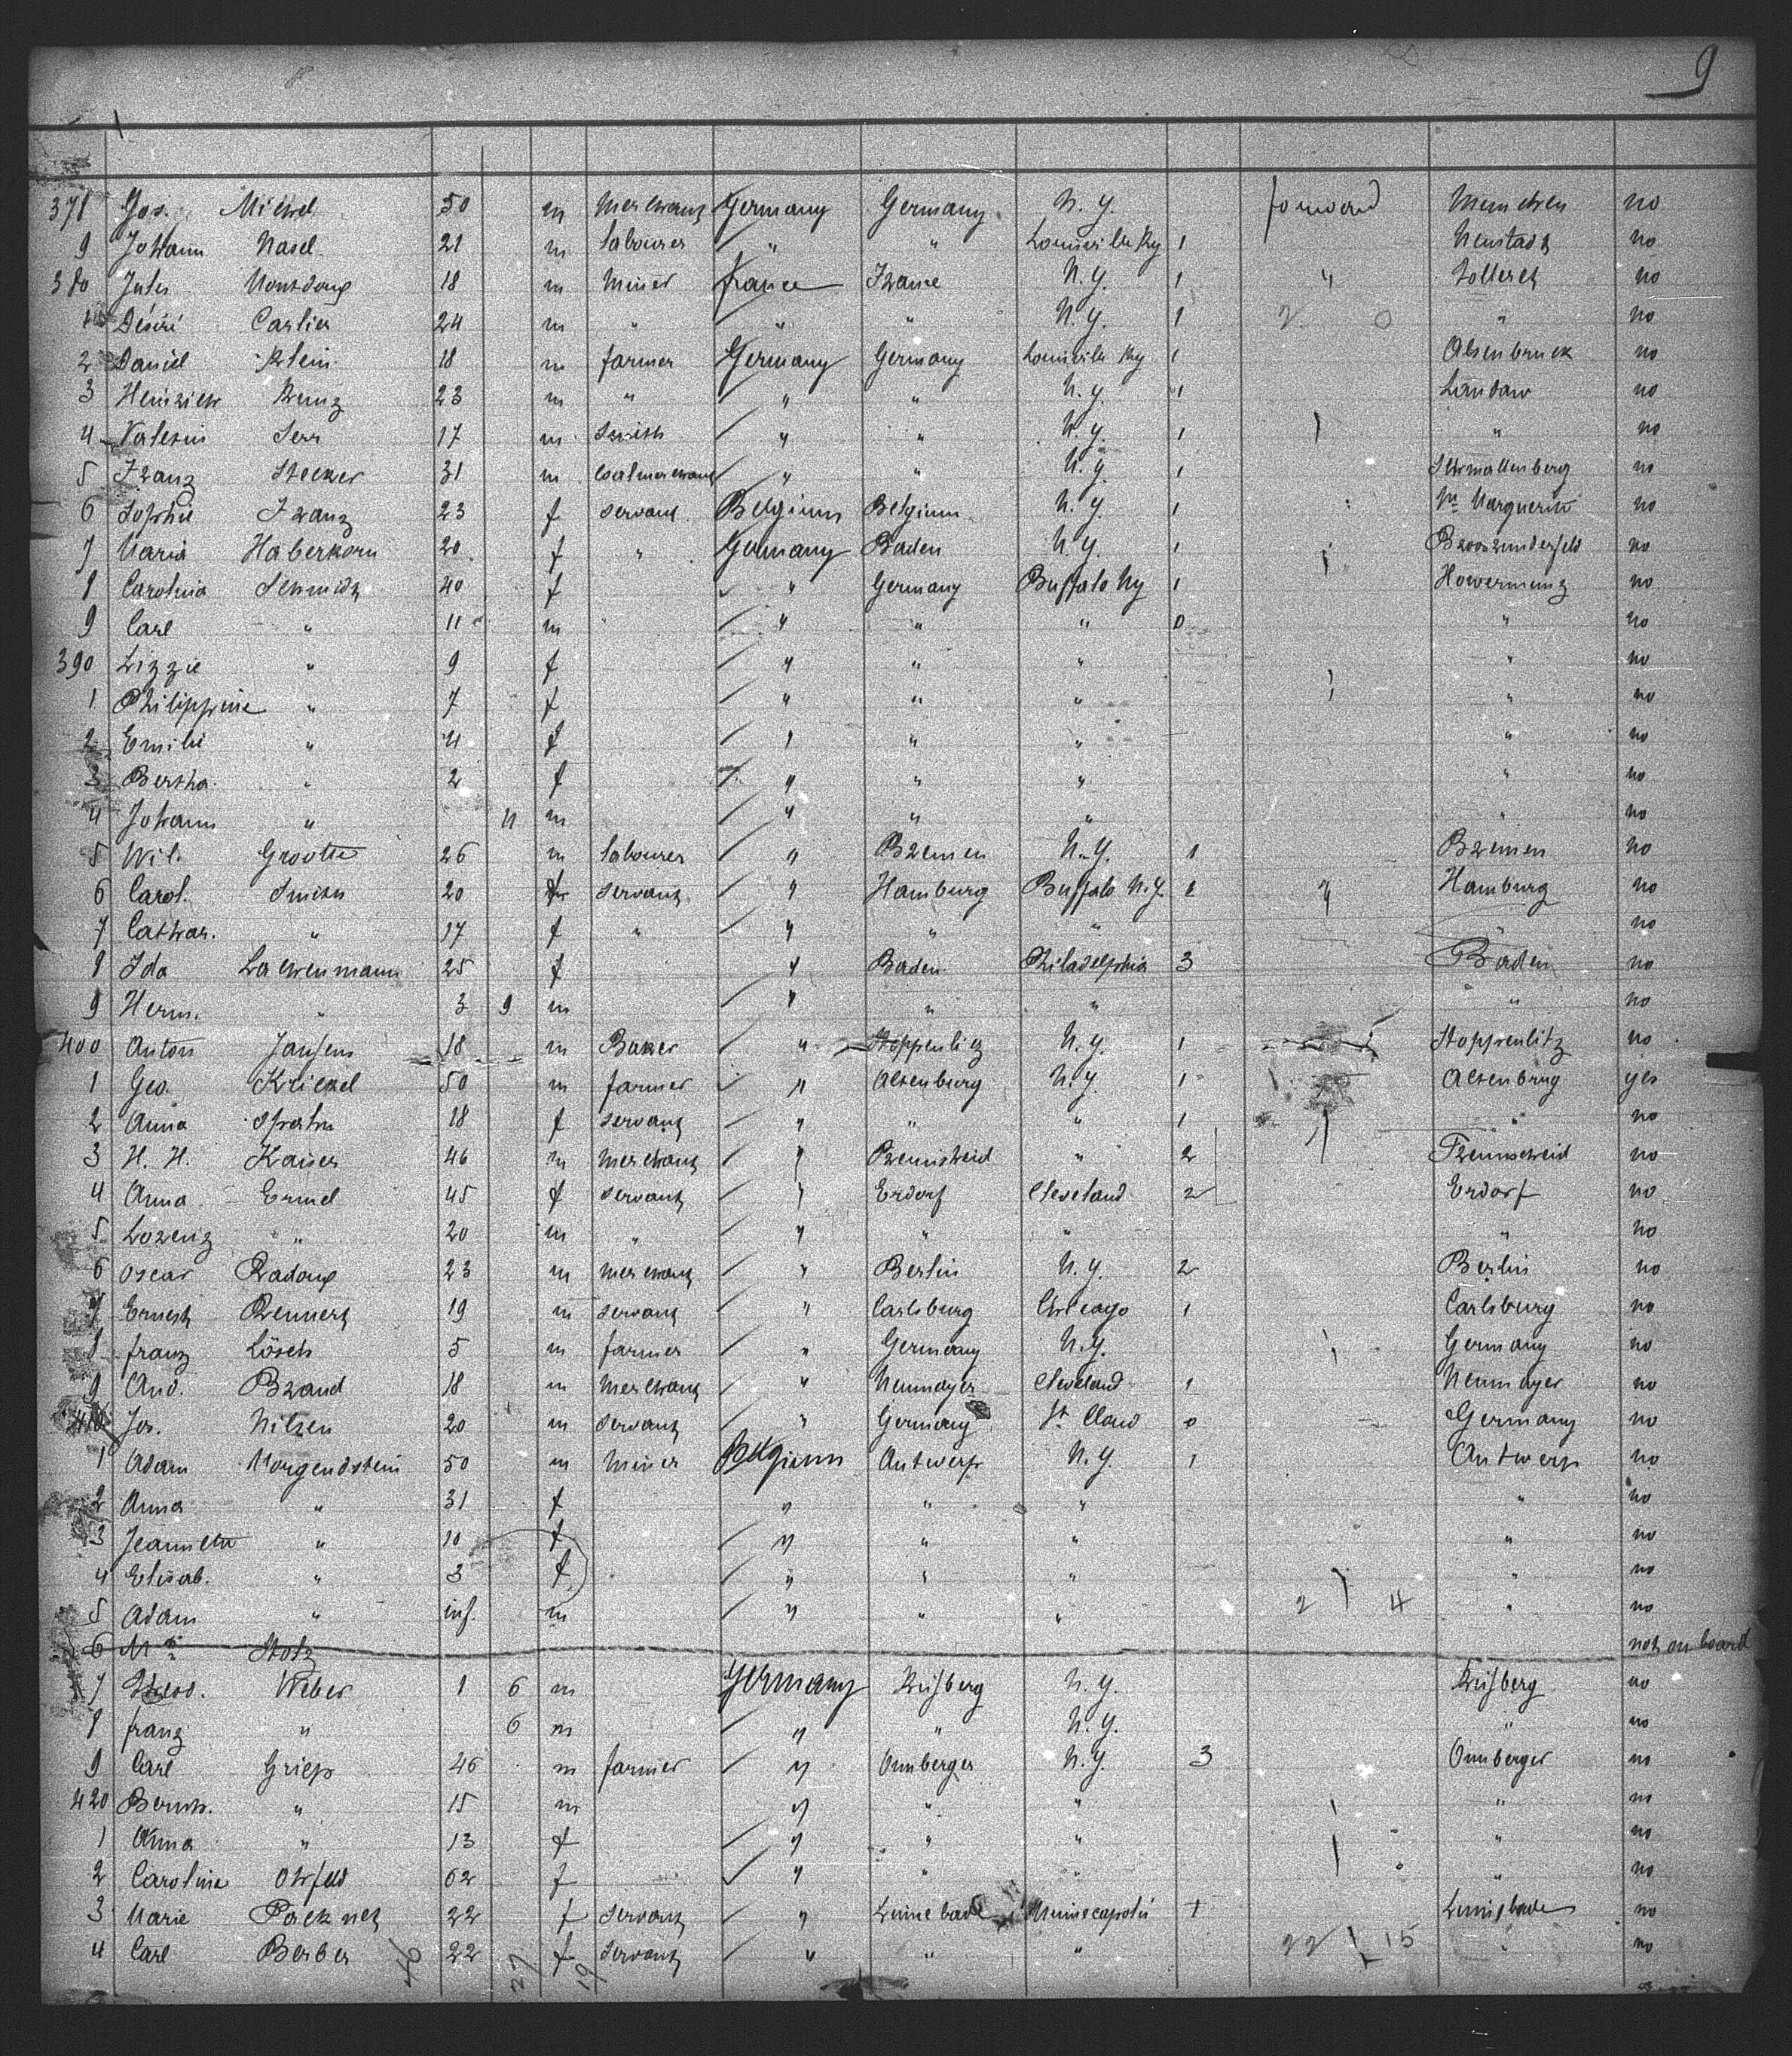 9
378 Jos. Michel 50 m Merchant Germany Germany N.Y. forward Munchen no
9 Johann Nasel 21 m labourer " " Louisville Ky 1 Neustadt no
380 Jules 18 m Miner France France N.Y. 1 " no
Désiré Carlier 24 m " " " N.Y. 1 2 0 " no
2 Daniel Klein 18 m farmer Germany Germany Louisville Ky 1 Alsenbruck no
3 Heinrich Kunz 23 m " " " N.Y. 1 Landaw no
4 Valesin Serr 17 m Smith " " N.Y. 1 " no
5 Franz Stecker 31 m Coalmerchant " " N.Y. 1 Schmallenberg no
6 Sophie Franz 23 f servant Belgium Belgium N.Y. 1 no
7 Maria Haberkorn 20 f " Germany Baden N.Y. 1 no
8 Carolina Schmidt 40 f " Germany Buffalo Ny 1 no
9 Carl " 11 m " " " 0 " no
390 Lizzie " 9 f " " " " no
1 Philippine " 7 f " " " " no
2 Emilie " 4 f " " " " no
3 Bertha " 2 f " " " " no
4 Johann " 11 m " " " " no
5 Wil. Grootte 26 m labourer " Bremen N.Y. 1 Bremen no
6 Carol. Smith 20 f servant " Hamburg Buffalo N.Y. 2 " Hamburg no
7 Cathar. " 17 f " " " " " no
8 Ida Lachenmann 25 f " Baden Philadelphia 3 Baden no
9 Herm. " 3 9 m " " " " no
400 Anton Jansens 18 m Baker " Stoppenlitz N.Y. 1 Stoppenlitz no
1 Geo. Krickel 50 m farmer " Altenburg N.Y. 1 Altenbrug yes
2 Anna Spahn 18 f servant " " " 1 " no
3 H. H. Kaiser 46 m merchant " Remscheid " 2 Remscheid no
4 Anna Ermel 45 f servant " Erdorf Cleveland 2 Erdorf no
5 Lorenz " 20 m " " " " " no
6 Oscar 23 m merchant " Berlin N.Y. 2 Berlin no
7 Ernest Rennert 19 m servant " Carlsburg Chicago 1 Carlsburg no
8 franz Lösch 5 m farmer " Germany N.Y. Germany no
9 And. Brand 18 m merchant " Neumayer Cleveland 1 Neumayer no
410 Jos. Nilsen 20 m servant " Germany St Cloud 0 Germany no
1 Adam Morgendstein 50 m miner Belgium Antwerp N.Y. 1 Antwerp no
2 Anna " 31 f " " " " no
3 Jeannette " 10 f " " " " no
4 Elisab. " 3 f " " " " no
5 Adam " inf. m " " " 2 4 " no
6 Stotz not on board
7 Weber 1 6 m Germany Kusberg N.Y. Kusberg no
8 franz " 6 m " " N.Y. " no
9 Carl Griep 46 m farmer " Omberger N.Y. 3 Omberger no
420 Bernh. " 15 m " " " " no
1 Anna " 13 f " " " " no
2 Caroline Ohfeld 62 f " " " " no
3 Marie 22 f servant " 1 no
4 Carl Berber 22 f servant " " " 22 15 " no
46 27 19